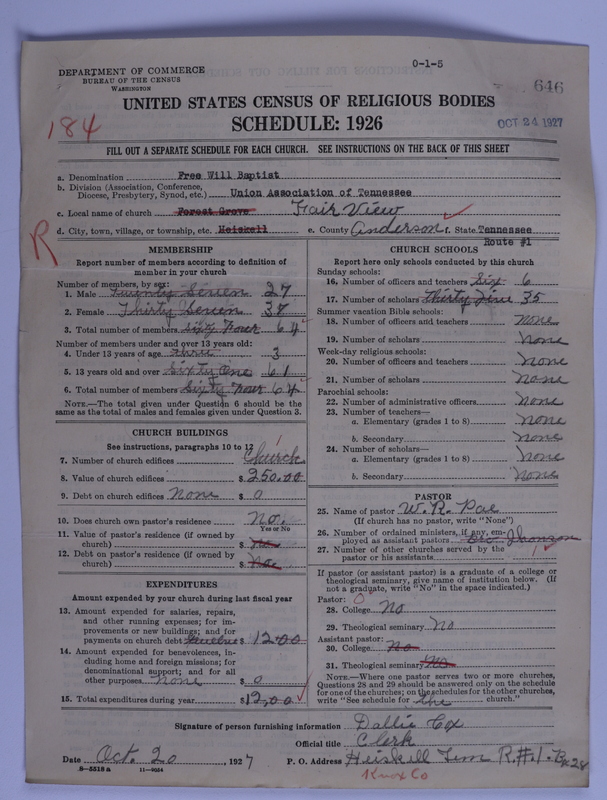 0-1-5
DEPARTMENT OF COMMERCE
BUREAU OF THE CENSUS
WASHINGTON
646
UNITED STATES CENSUS OF RELIGIOUS BODIES
184
SCHEDULE: 1926
OCT 24 1927
FILL OUT A SEPARATE SCHEDULE FOR EACH CHURCH. SEE INSTRUCTIONS ON THE BACK OF THIS SHEET
a. Denomination Free Will Baptist
b. Division (Association, Conference, Diocese, Presbytery, Synod, etc.) Union Association of Tennessee
c. Local name of church Forest Grove Fair View
d. City, town, village, or township, etc. Heiskell e. County Anderson f. State Tennessee
Route #1
R
MEMBERSHIP
Report number of members according to definition of
member in your church
Number of members, by sex:
1. Male Twenty Seven 27
2. Female Thirty Seven 37
3. Total number of members Sixty Four 64
Number of members under and over 13 years old:
4. Under 13 years of age three 3
5. 13 years old and over Sixty One 61
6. Total number of members Sixty Four 64
NOTE.—The total given under Question 6 should be the
same as the total of males and females given under Question 3.
CHURCH BUILDINGS
See instructions, paragraphs 10 to 12
7. Number of church edifices Church 1
8. Value of church edifices $ 250.00
9. Debt on church edifices None $ 0
10. Does church own pastor's residence No.
Yes or No
11. Value of pastor's residence (if owned by
church) $ No
12. Debt on pastor's residence (if owned by
church) $
EXPENDITURES
Amount expended by your church during last fiscal year
13. Amount expended for salaries, repairs,
and other running expenses; for im-
provements or new buildings; and for
payments on church debt $ 12.00
14. Amount expended for benevolences, in-
cluding home and foreign missions; for
denominational support; and for all
other purposes none $ 0
15. Total expenditures during year $ 12.00
CHURCH SCHOOLS
Report here only schools conducted by this church
Sunday schools:
16. Number of officers and teachers Six 6
17. Number of scholars thirty five 35
Summer vacation Bible schools:
18. Number of officers and teachers none
19. Number of scholars none
Week-day religious schools:
20. Number of officers and teachers none
21. Number of scholars none
Parochial schools:
22. Number of administrative officers none
23. Number of teachers—
a. Elementary (grades 1 to 8) none
b. Secondary none
24. Number of scholars—
a. Elementary (grades 1 to 8) none
b. Secondary none
PASTOR
25. Name of pastor W. R. Pae
(If church has no pastor, write "None")
26. Number of ordained ministers, if any, em-
ployed as assistant pastors
27. Number of other churches served by the
pastor or his assistants 1
If pastor (or assistant pastor) is a graduate of a college or
theological seminary, give name of institution below. (If
not a graduate, write "No" in the space indicated.)
Pastor: 0
28. College No
29. Theological seminary No
Assistant pastor:
30. College No
31. Theological seminary No
NOTE.—Where one pastor serves two or more churches,
Questions 28 and 29 should be answered only on the schedule
for one of the churches; on the schedules for the other churches,
write "See schedule for the church."
Signature of person furnishing information Dallie Cox
Official title Clerk
Date Oct. 20, 1927 P. O. Address Heiskell Tenn R.#.1.
8-5518 a 11-9054
Knox Co